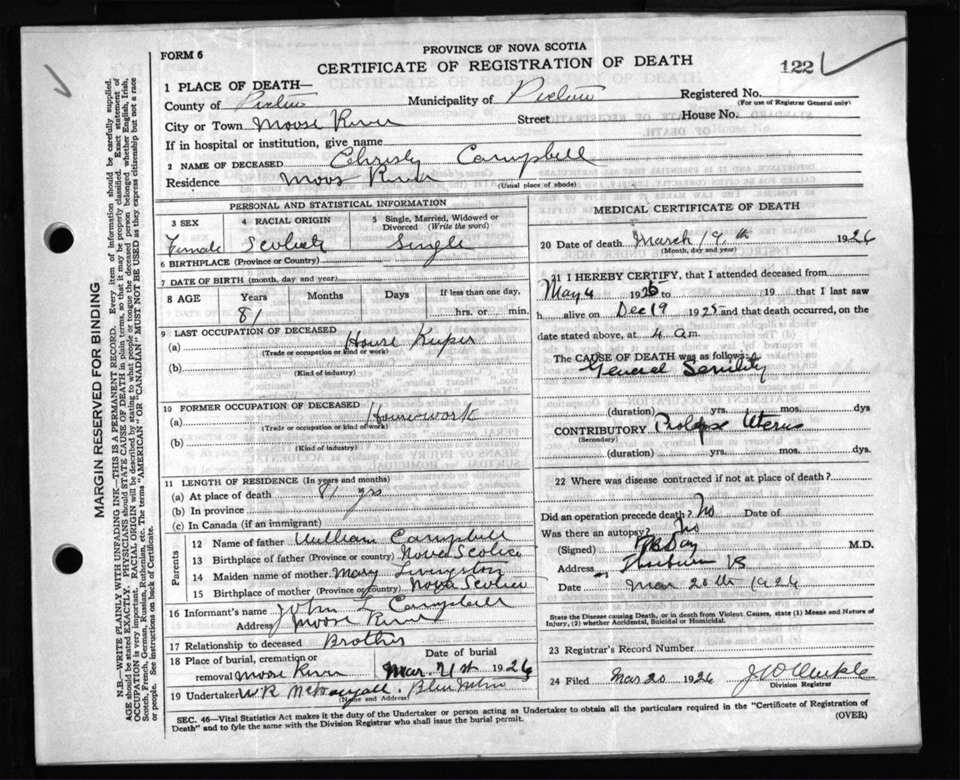 PROVINCE OF NOVA SCOTIA
FORM 6
CERTIFICATE OF REGISTRATION OF DEATH
122
1 PLACE OF DEATH—
Registered No.
(For use of Registrar General only)
County of Pictou Municipality of Pictou
City or Town Moose River Street House No.
If in hospital or institution, give name
2 NAME OF DECEASED Christy Campbell
Residence Moos River
(Usual place of abode)
PERSONAL AND STATISTICAL INFORMATION
3 SEX
Female
4 RACIAL ORIGIN
Scotch
5 Single, Married, Widowed or Divorced (Write the word)
Single
6 BIRTHPLACE (Province or Country)
7 DATE OF BIRTH (month, day and year)
8 AGE Years Months Days If less than one day,
81 hrs. or min.
9 LAST OCCUPATION OF DECEASED
(a) House Keeper
(Trade or occupation or kind or work)
(b)
(Kind of industry)
10 FORMER OCCUPATION OF DECEASED
(a) Housework
(Trade or occupation or kind of work)
(b)
(Kind of industry)
11 LENGTH OF RESIDENCE (In years and months)
(a) At place of death 81 yrs
(b) In province
(c) In Canada (if an immigrant)
Parents
12 Name of father William Campbell
13 Birthplace of father (Province or country) Nova Scotia
14 Maiden name of mother Mary Livingston
15 Birthplace of mother (Province or country) Nova Scotia
16 Informant's name John L Campbell
Address Moose River
17 Relationship to deceased Brother
18 Place of burial, cremation or removal Moose River
Date of burial
Mar. 21st 1926
19 Undertaker W.R.
(Name and Address)
MEDICAL CERTIFICATE OF DEATH
20 Date of death March 19th 1926
(Month, day and year)
21 I HEREBY CERTIFY, that I attended deceased from
May 4 1925 to 19 that I last saw
h alive on Dec 19 1925 and that death occurred, on the
date stated above, at 4 am.
The CAUSE OF DEATH was as follows:
General Senility
(duration) yrs. mos. dys
CONTRIBUTORY Prolapse Uterus
(Secondary)
(duration) yrs. mos. dys.
22 Where was disease contracted if not at place of death?
Did an operation precede death? No Date of
Was there an autopsy? No
(Signed) Day M.D.
Address Thorburn NS
Date Mar 20th 1926
State the Disease causing Death, or in death from Violent Causes, state (1) Means and Nature of
Injury, (2) whether Accidental, Suicidal or Homicidal.
23 Registrar's Record Number
24 Filed Mar 20 1926
Division Registrar
SEC. 46—Vital Statistics Act makes it the duty of the Undertaker or person acting as Undertaker to obtain all the particulars required in the "Certificate of Registration of
Death" and to fyle the same with the Division Registrar who shall issue the burial permit.
(OVER)
MARGIN RESERVED FOR BINDING
N.B.—WRITE PLAINLY WITH UNFADING INK—THIS IS A PERMANENT RECORD. Every item of information should be carefully supplied.
AGE should be stated EXACTLY. PHYSICIANS should STATE CAUSE OF DEATH in plain terms, so that it may be properly classified. Exact statement of
OCCUPATION is very important. RACIAL ORIGIN will be described by stating to what people or tongue the deceased person belonged whether English, Irish,
Scotch, French, German, Russian, Ruthenian, etc. The terms "AMERICAN" OR "CANADIAN" MUST NOT BE USED as they express citizenship but not a race
or people. See instructions on back of Certificate.